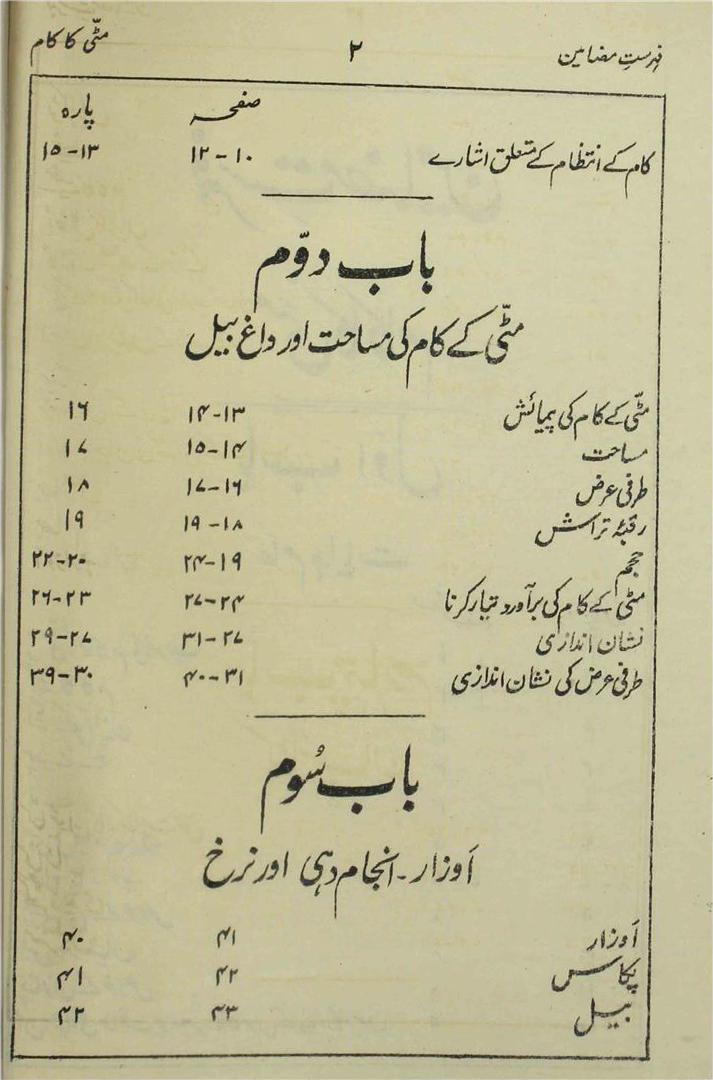 فہرستِ مضامین ۲ مٹّی کا کام
صفحہ پارہ
کام کے انتظام کے متعلق اشارے ۱۰-۱۲ ۱۳-۱۵
باب دوّم
مٹّی کے کام کی مساحت اور داغ بیل
مٹّی کے کام کی پیمائش ۱۳-۱۴ ۱۶
مساحت ۱۴-۱۵ ۱۷
طرفی عرض ۱۶-۱۷ ۱۸
رقبۂ تراش ۱۸-۱۹ ۱۹
حجم ۱۹-۲۴ ۲۰-۲۲
مٹی کے کام کی برآورد تیار کرنا ۲۴-۲۷ ۲۳-۲۶
نشان اندازی ۲۷-۳۱ ۲۷-۲۹
طرفی عرض کی نشان اندازی ۳۱-۴۰ ۳۰-۳۹
باب سُوم
اَوزار۔ انجام دہی اور نرخ
اَوزار ۴۱ ۴۰
پکاس ۴۲ ۴۱
بیل ۴۳ ۴۲